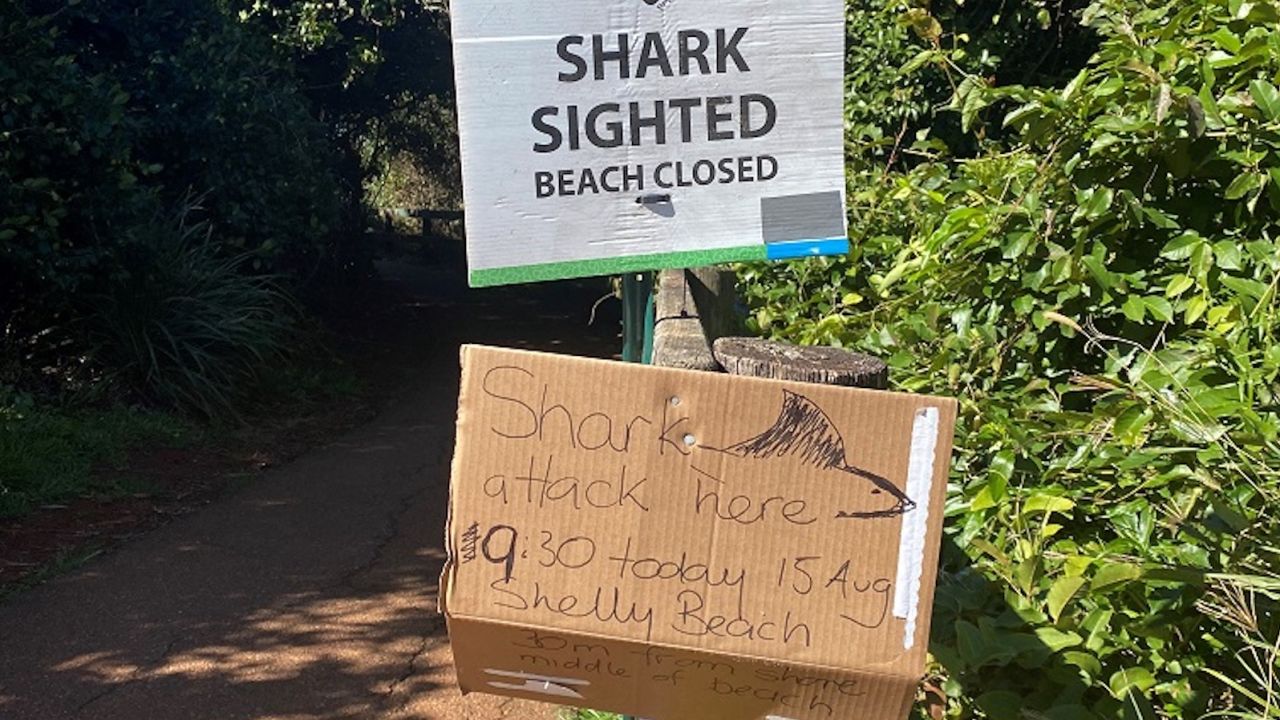 SHARK
SIGHTED
BEACH CLOSED
Shark
attack here
9:30 today 15 Aug
Shelly Beach
30m from shore
middle of beach